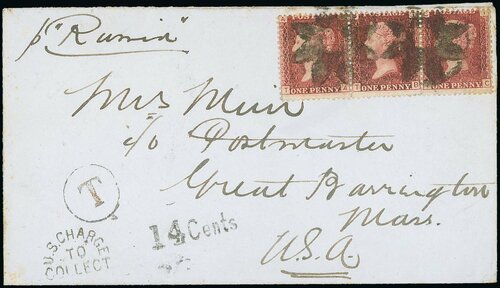 p "Russia"
ONE PENNY
ONE PENNY
ONE PENNY
Mrs Muir
c/o Postmaster
Great Barrington
Mass.
U.S.A.
T
U.S. CHARGE
TO
COLLECT
14 Cents